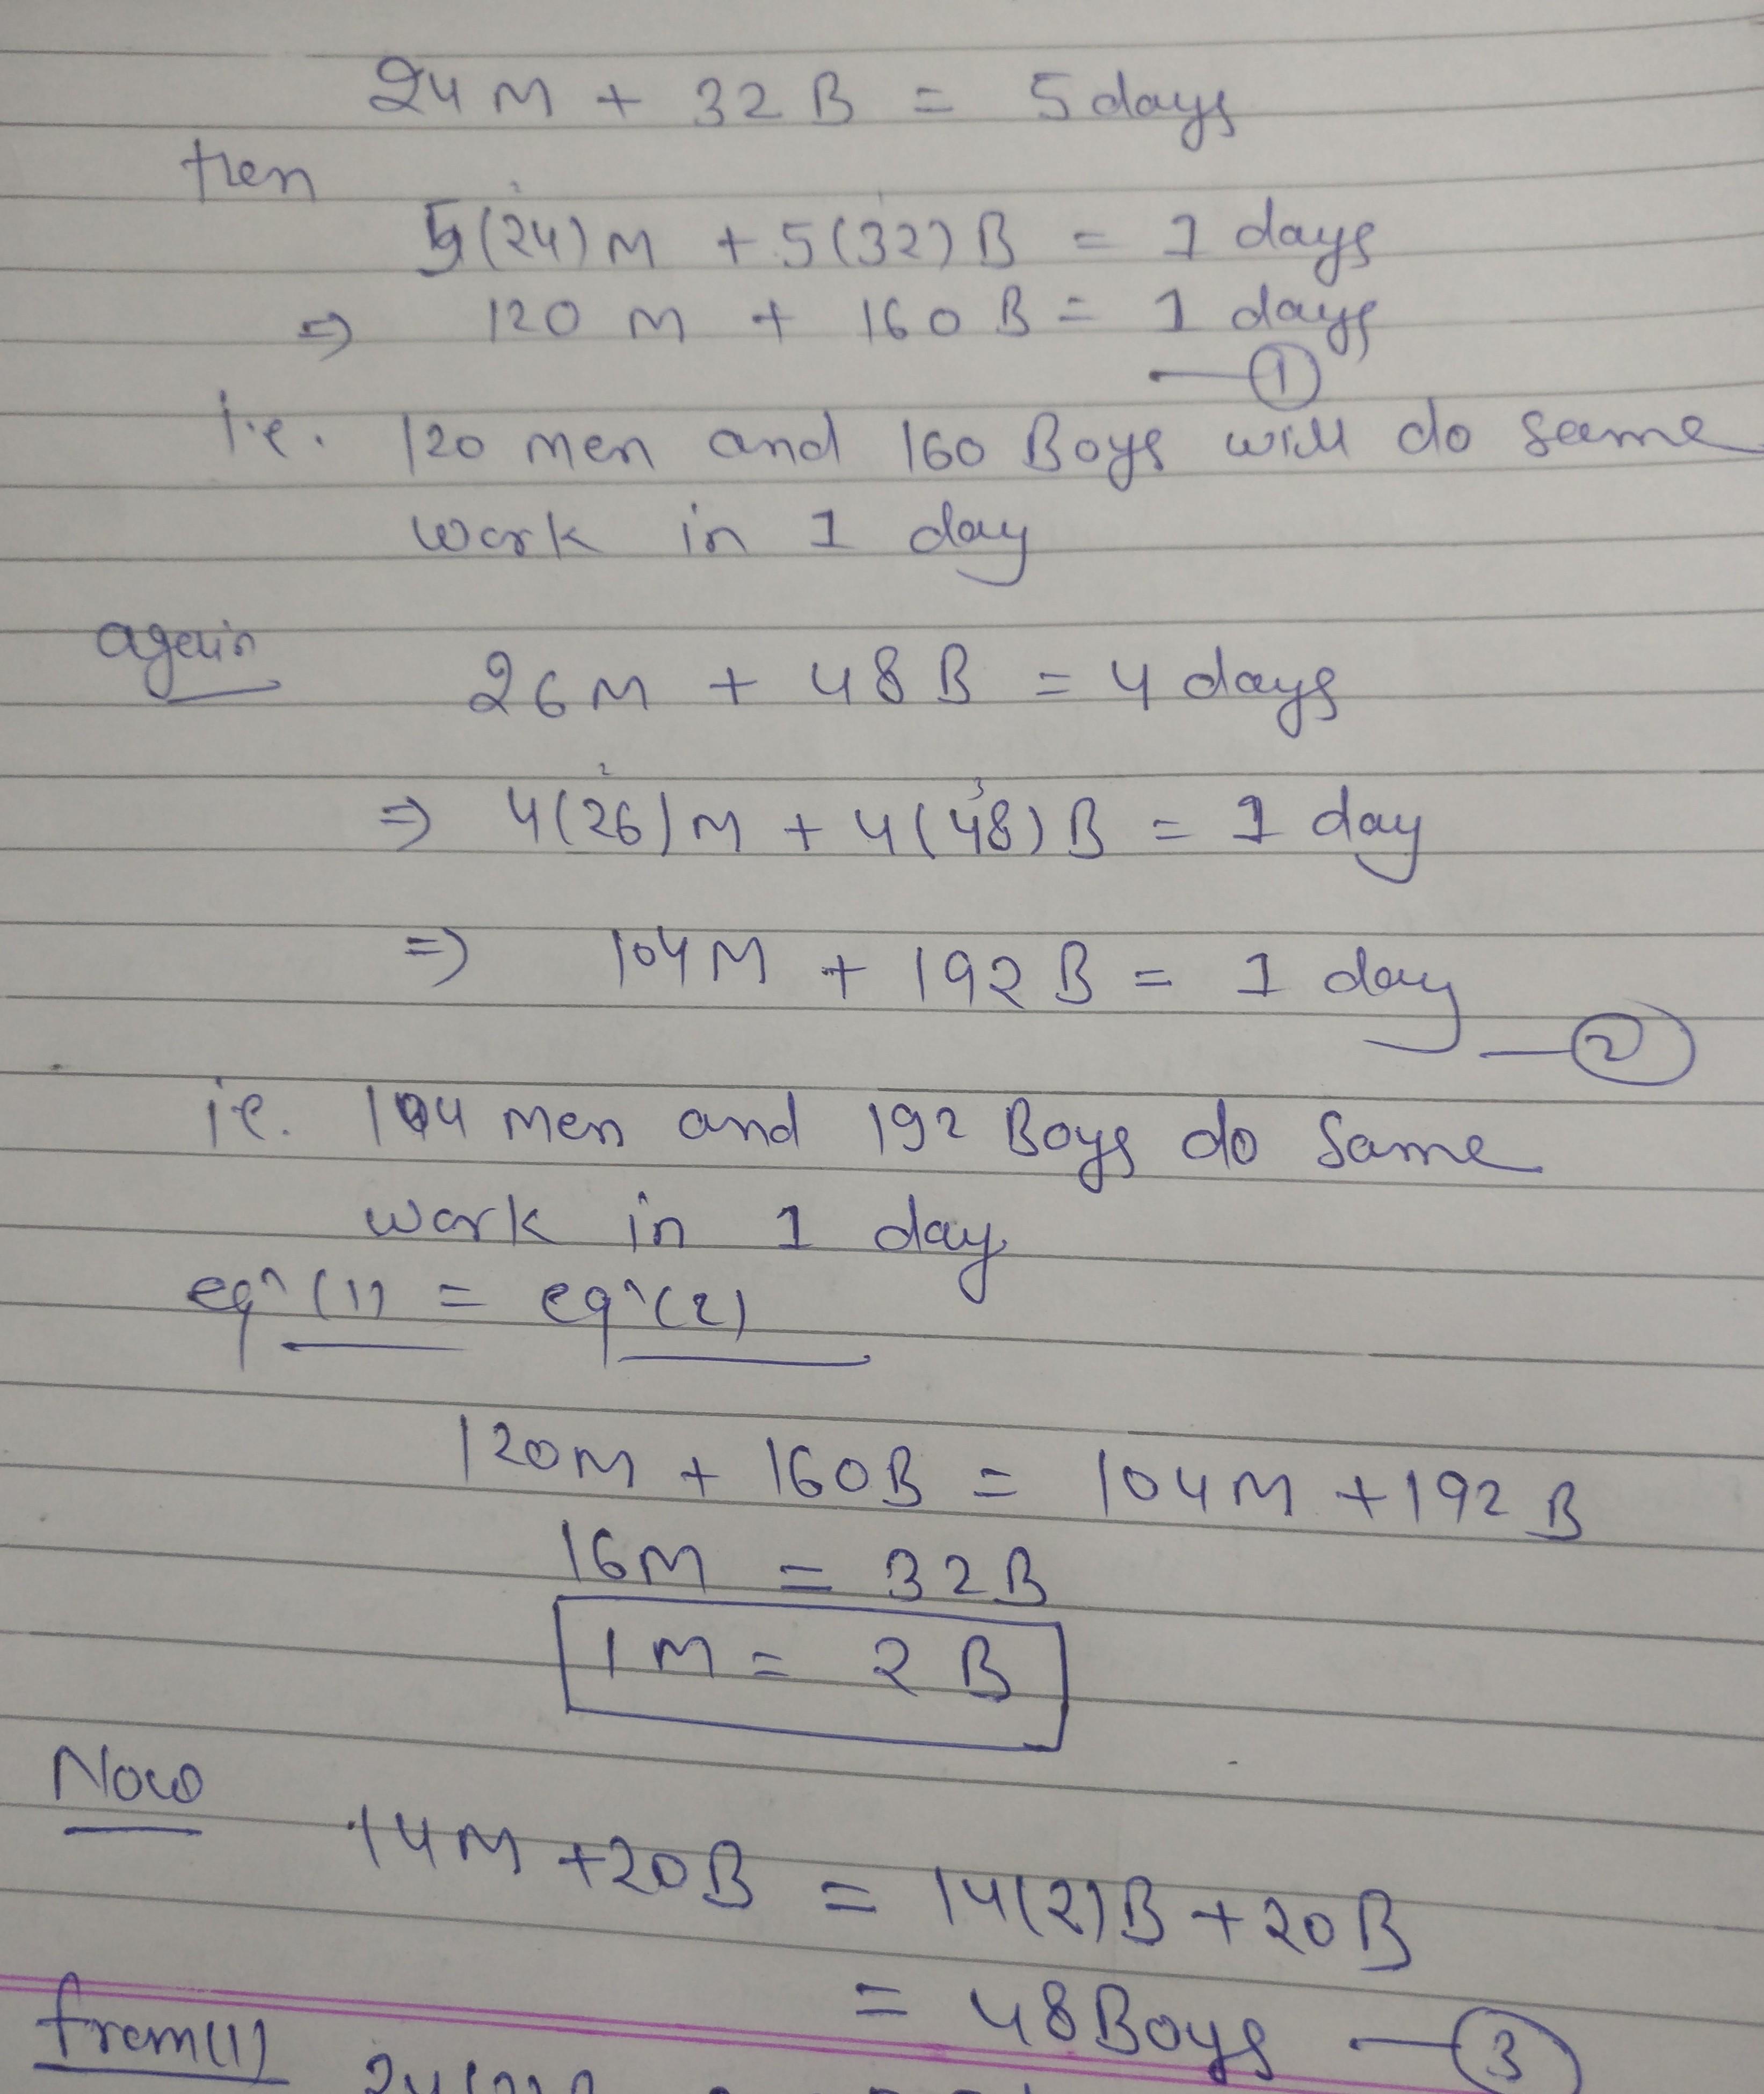 24 M + 32 B = 5 days
then
5(24) M + 5(32) B = 1 days
⇒ 120 M + 160 B = 1 days
— ①
i.e. 120 men and 160 Boys will do same
work in 1 day
again 26 M + 48 B = 4 days
⇒ 4(26) M + 4(48) B = 1 day
⇒ 104 M + 192 B = 1 day
— ②
i.e. 104 men and 192 Boys do same
work in 1 day
eqⁿ (1) = eqⁿ (2)
120M + 160B = 104M + 192 B
16M = 32B
1 M = 2 B
Now
14M + 20B = 14(2)B + 20B
= 48 Boys — ③
from (1)